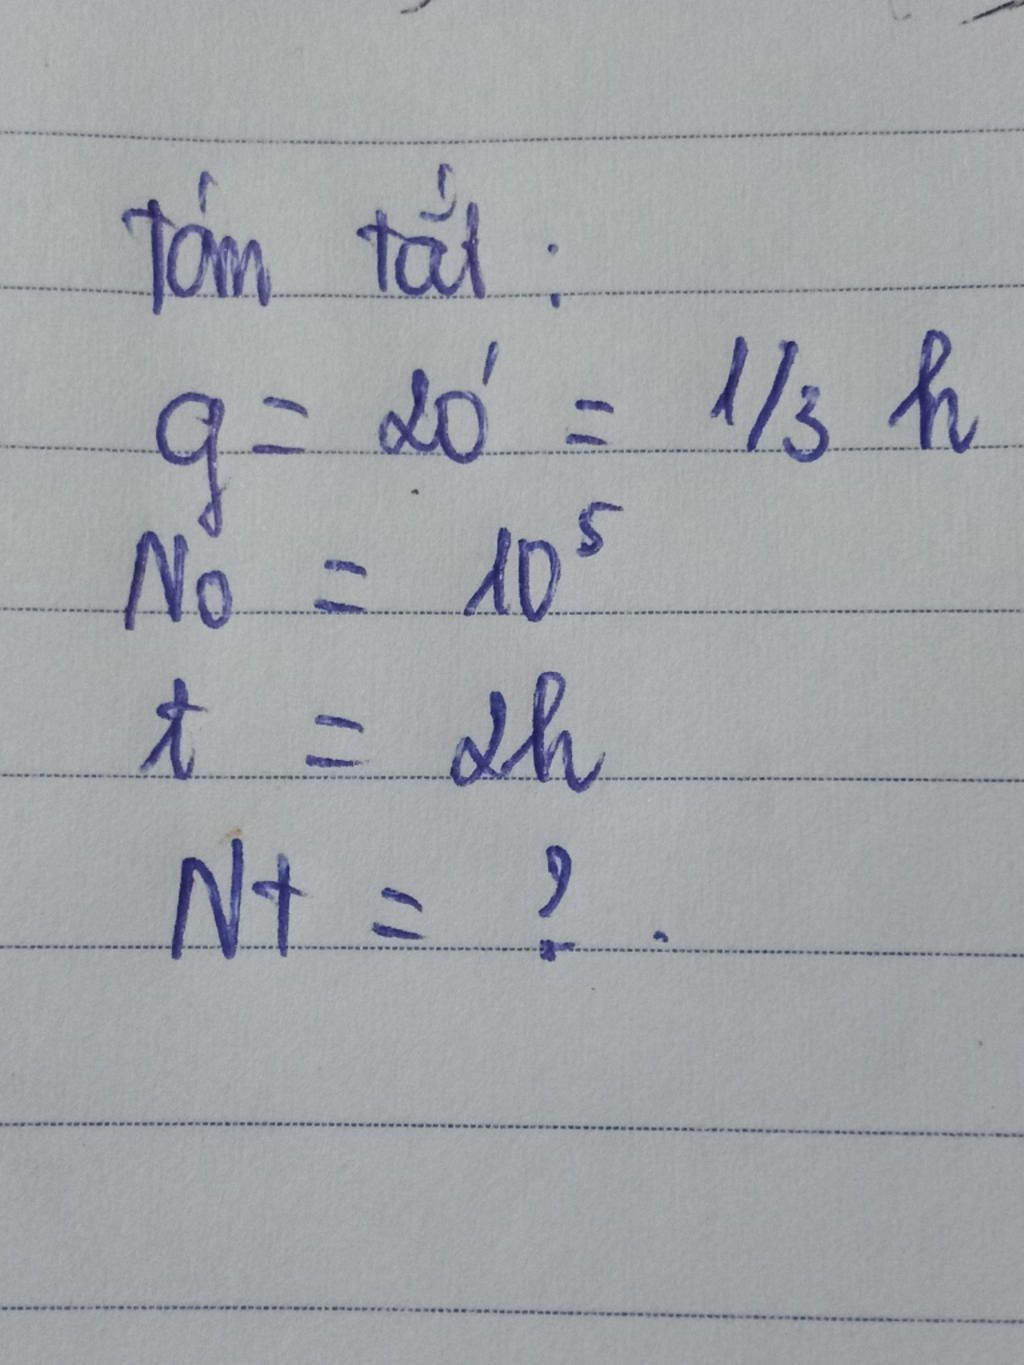 Tóm tắt :
g = 20' = 1/3 h
No = 10⁵
t = 2h
Nt = ? .